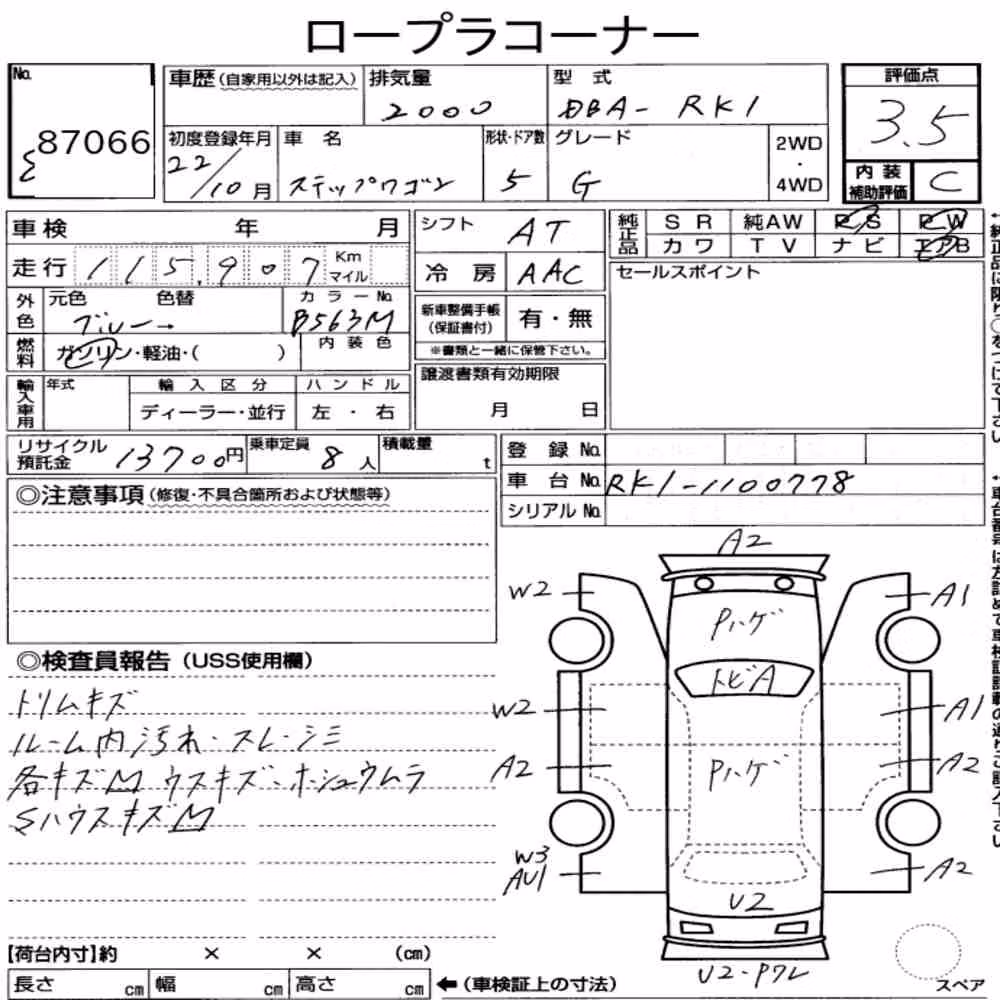 ロープラコーナー
No. 87066
車歴(自家用以外は記入) 排気量 2000 型式 DBA- RK1 評価点 3.5
初度登録年月 22/10月 車名 ステップワゴン 形状・ドア数 5 グレード G 2WD・4WD 内装補助評価 C
車検 年 月 シフト AT 純正品 SR 純AW PS PW
走行 115,907 Km マイル 冷房 AAC カワ TV ナビ エアB
外色 元色 ブルー→ 色替 カラーNo. B563M 新車整備手帳(保証書付) 有・無 セールスポイント
※書類と一緒に保管下さい。
燃料 ガソリン・軽油・( ) 内装色
譲渡書類有効期限 月 日
輸入車用 年式 輸入区分 ディーラー・並行 ハンドル 左・右
リサイクル預託金 13700円 乗車定員 8人 積載量 t 登録No.
車台No. RK1-1100778
シリアルNo.
◎注意事項(修復・不具合箇所および状態等)
◎検査員報告(USS使用欄)
トリムキズ
ルーム内汚れ・スレ・シミ
各キズM ウスキズ・ホシュウムラ
SハウスキズM
A2
W2 Pハゲ A1
トビA
W2 A1
A2 Pハゲ A2
W3
AU1 A2
U2
U2-Pワレ
スペア
【荷台内寸】約 × × (cm)
長さ cm 幅 cm 高さ cm ←(車検証上の寸法)